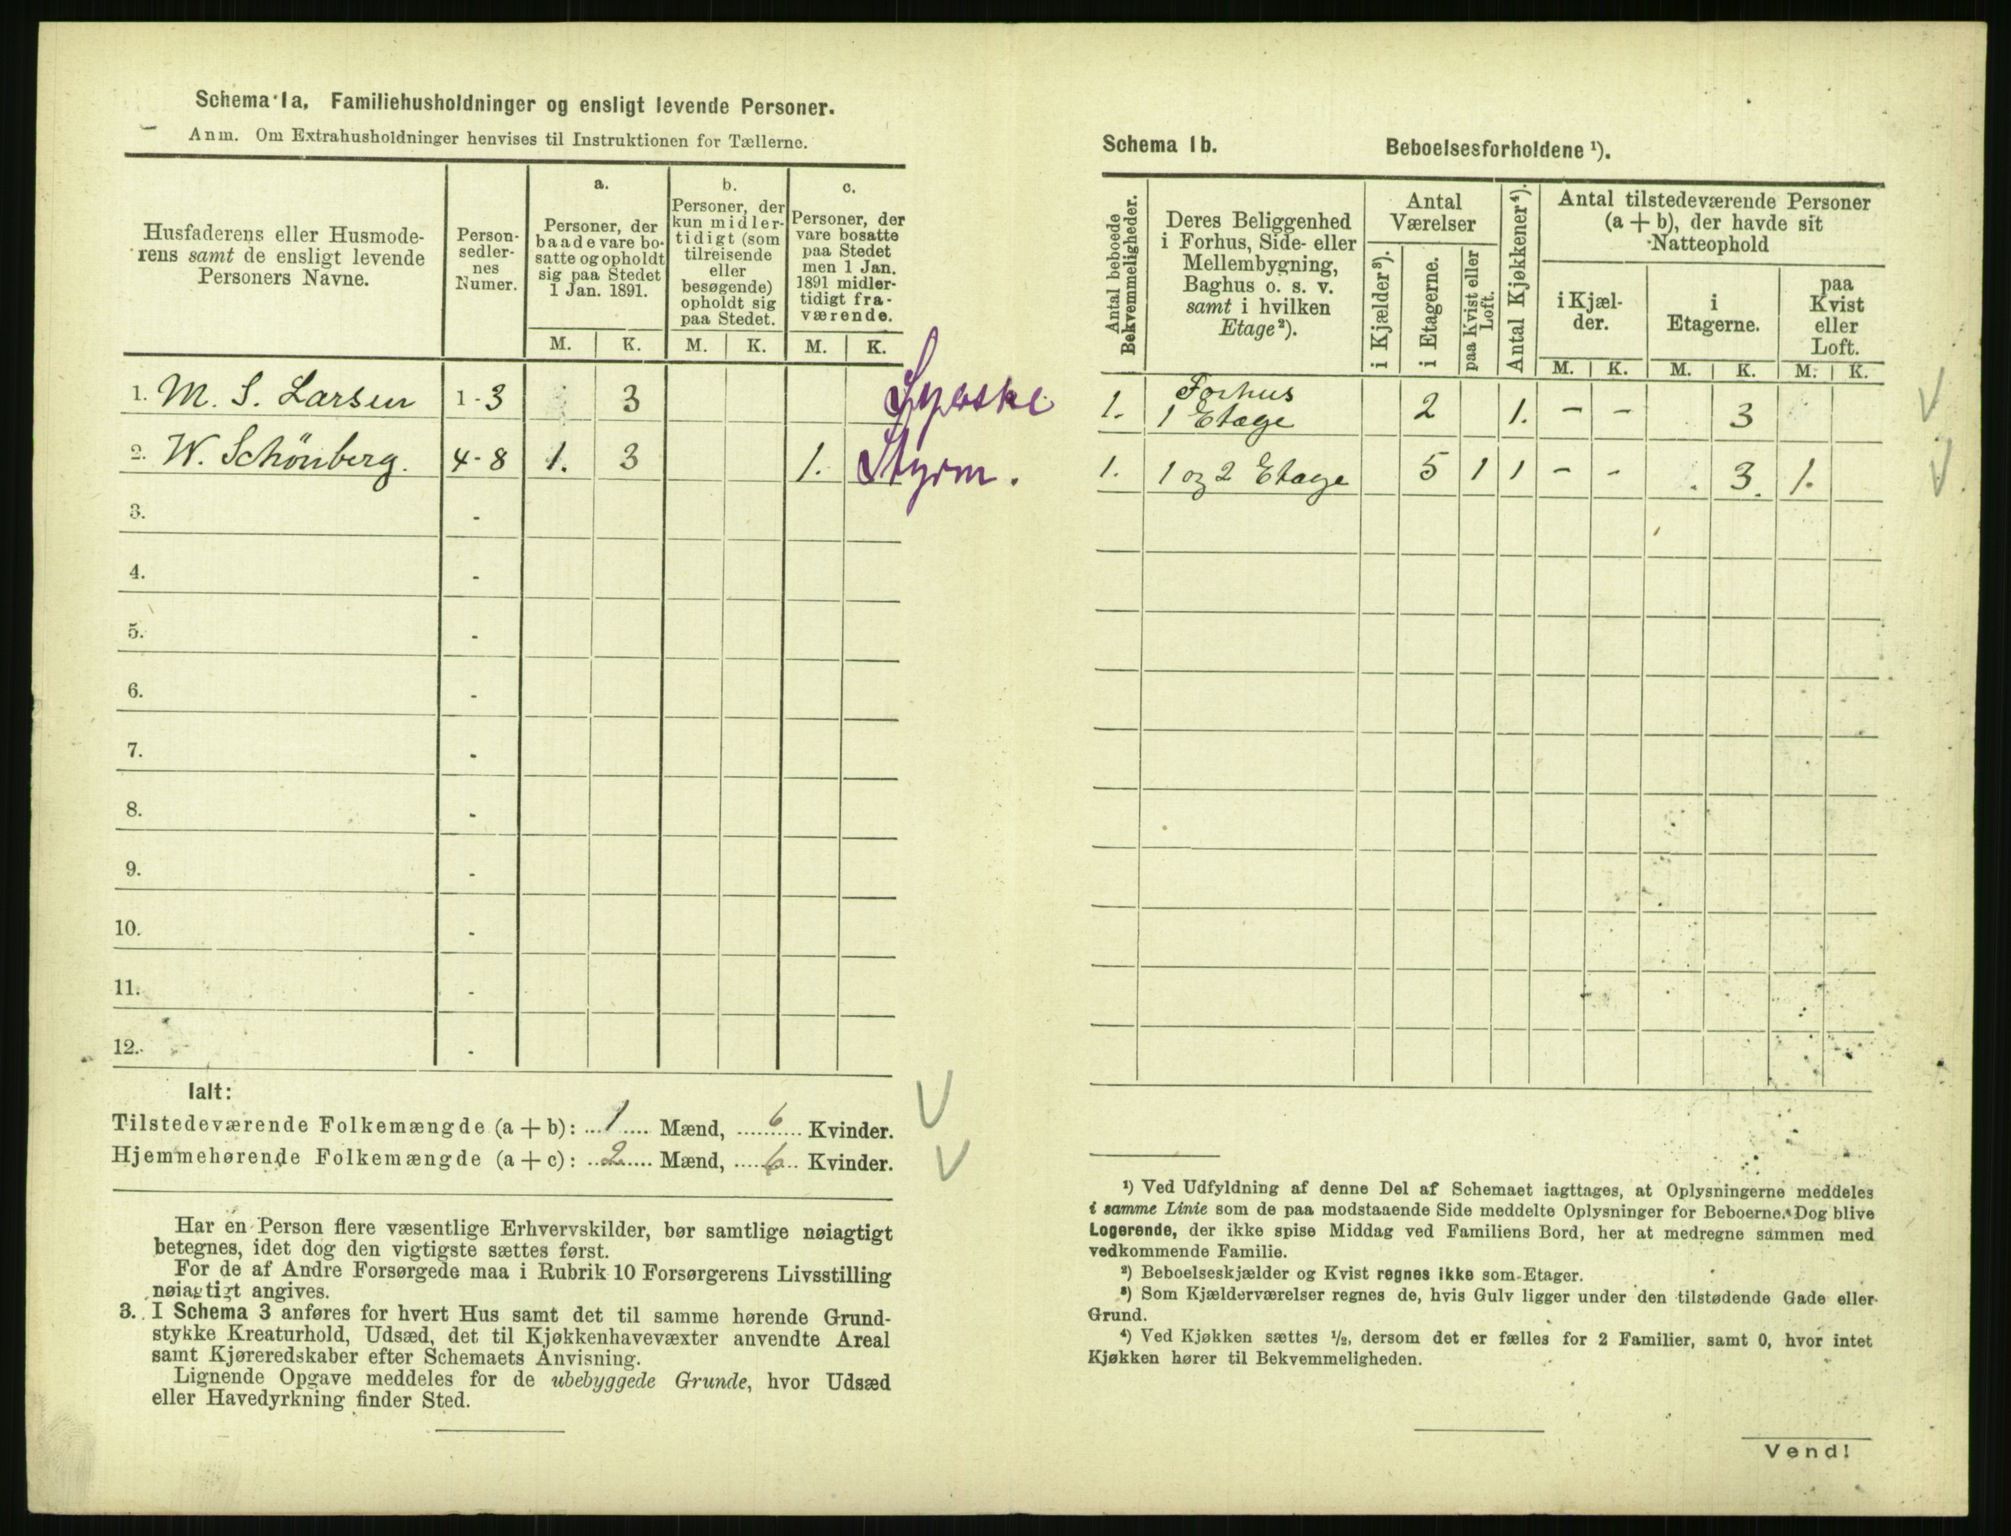 Schema 1a. Familiehusholdninger og ensligt levende Personer.
Anm. Om Extrahusholdninger henvises til Instruktionen for Tællerne.
Husfaderens eller Husmode-
rens samt de ensligt levende
Personers Navne.
Person-
sedler-
nes
Numer.
a.
Personer, der
baade vare bo-
satte og opholdt
sig paa Stedet
1 Jan. 1891.
b.
Personer, der
kun midler-
tidigt (som
tilreisende
eller
besøgende)
opholdt sig
paa Stedet.
c.
Personer, der
vare bosatte
paa Stedet
men 1 Jan.
1891 midler-
tidigt fra-
værende.
M. K. M. K. M. K.
1. M. S. Larsen 1-3 3 Syerske
2. W. Schönberg. 4-8 1. 3 1. Styrm.
3. -
4. -
5. -
6. -
7. -
8. -
9. -
10. -
11. -
12. -
Ialt:
Tilstedeværende Folkemængde (a + b): 1 Mænd, 6 Kvinder.
Hjemmehørende Folkemængde (a + c): 2 Mænd, 6 Kvinder.
Har en Person flere væsentlige Erhvervskilder, bør samtlige nøiagtigt
betegnes, idet dog den vigtigste sættes først.
For de af Andre Forsørgede maa i Rubrik 10 Forsørgerens Livsstilling
nøiagtigt angives.
3. I Schema 3 anføres for hvert Hus samt det til samme hørende Grund-
stykke Kreaturhold, Udsæd, det til Kjøkkenhavevæxter anvendte Areal
samt Kjøreredskaber efter Schemaets Anvisning.
Lignende Opgave meddeles for de ubebyggede Grunde, hvor Udsæd
eller Havedyrkning finder Sted.
Schema 1b. Beboelsesforholdene ¹).
Antal beboede
Bekvemmeligheder.
Deres Beliggenhed
i Forhus, Side- eller
Mellembygning,
Baghus o. s. v.
samt i hvilken
Etage²).
Antal
Værelser
i Kjælder³).
i Etagerne.
paa Kvist eller
Loft.
Antal Kjøkkener⁴).
Antal tilstedeværende Personer
(a + b), der havde sit
Natteophold
i Kjæl-
der.
i
Etagerne.
paa
Kvist
eller
Loft.
M. K. M. K. M. K.
1. Forhus
1 Etage 2 1. - - 3
1. 1 og 2 Etage 5 1 1 - - . 3. 1.
¹) Ved Udfyldning af denne Del af Schemaet iagttages, at Oplysningerne meddeles
i samme Linie som de paa modstaaende Side meddelte Oplysninger for Beboerne. Dog blive
Logerende, der ikke spise Middag ved Familiens Bord, her at medregne sammen med
vedkommende Familie.
²) Beboelseskjælder og Kvist regnes ikke som Etager.
³) Som Kjælderværelser regnes de, hvis Gulv ligger under den tilstødende Gade eller
Grund.
⁴) Ved Kjøkken sættes ½, dersom det er fælles for 2 Familier, samt 0, hvor intet
Kjøkken hører til Bekvemmeligheden.
Vend!